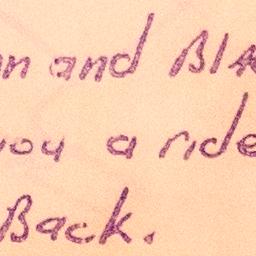 and
you a ride
Back.